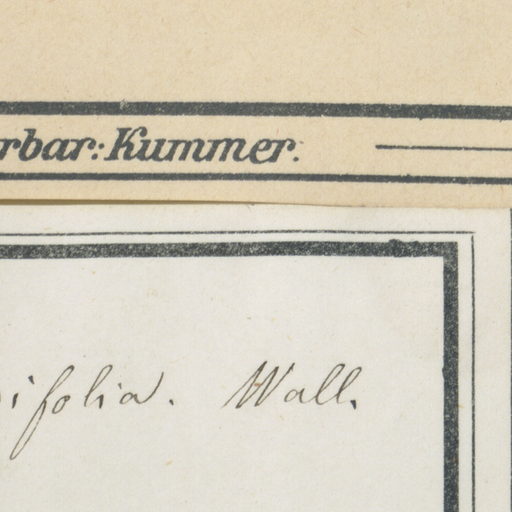 rbar: Kummer.
ifolia. Wall.